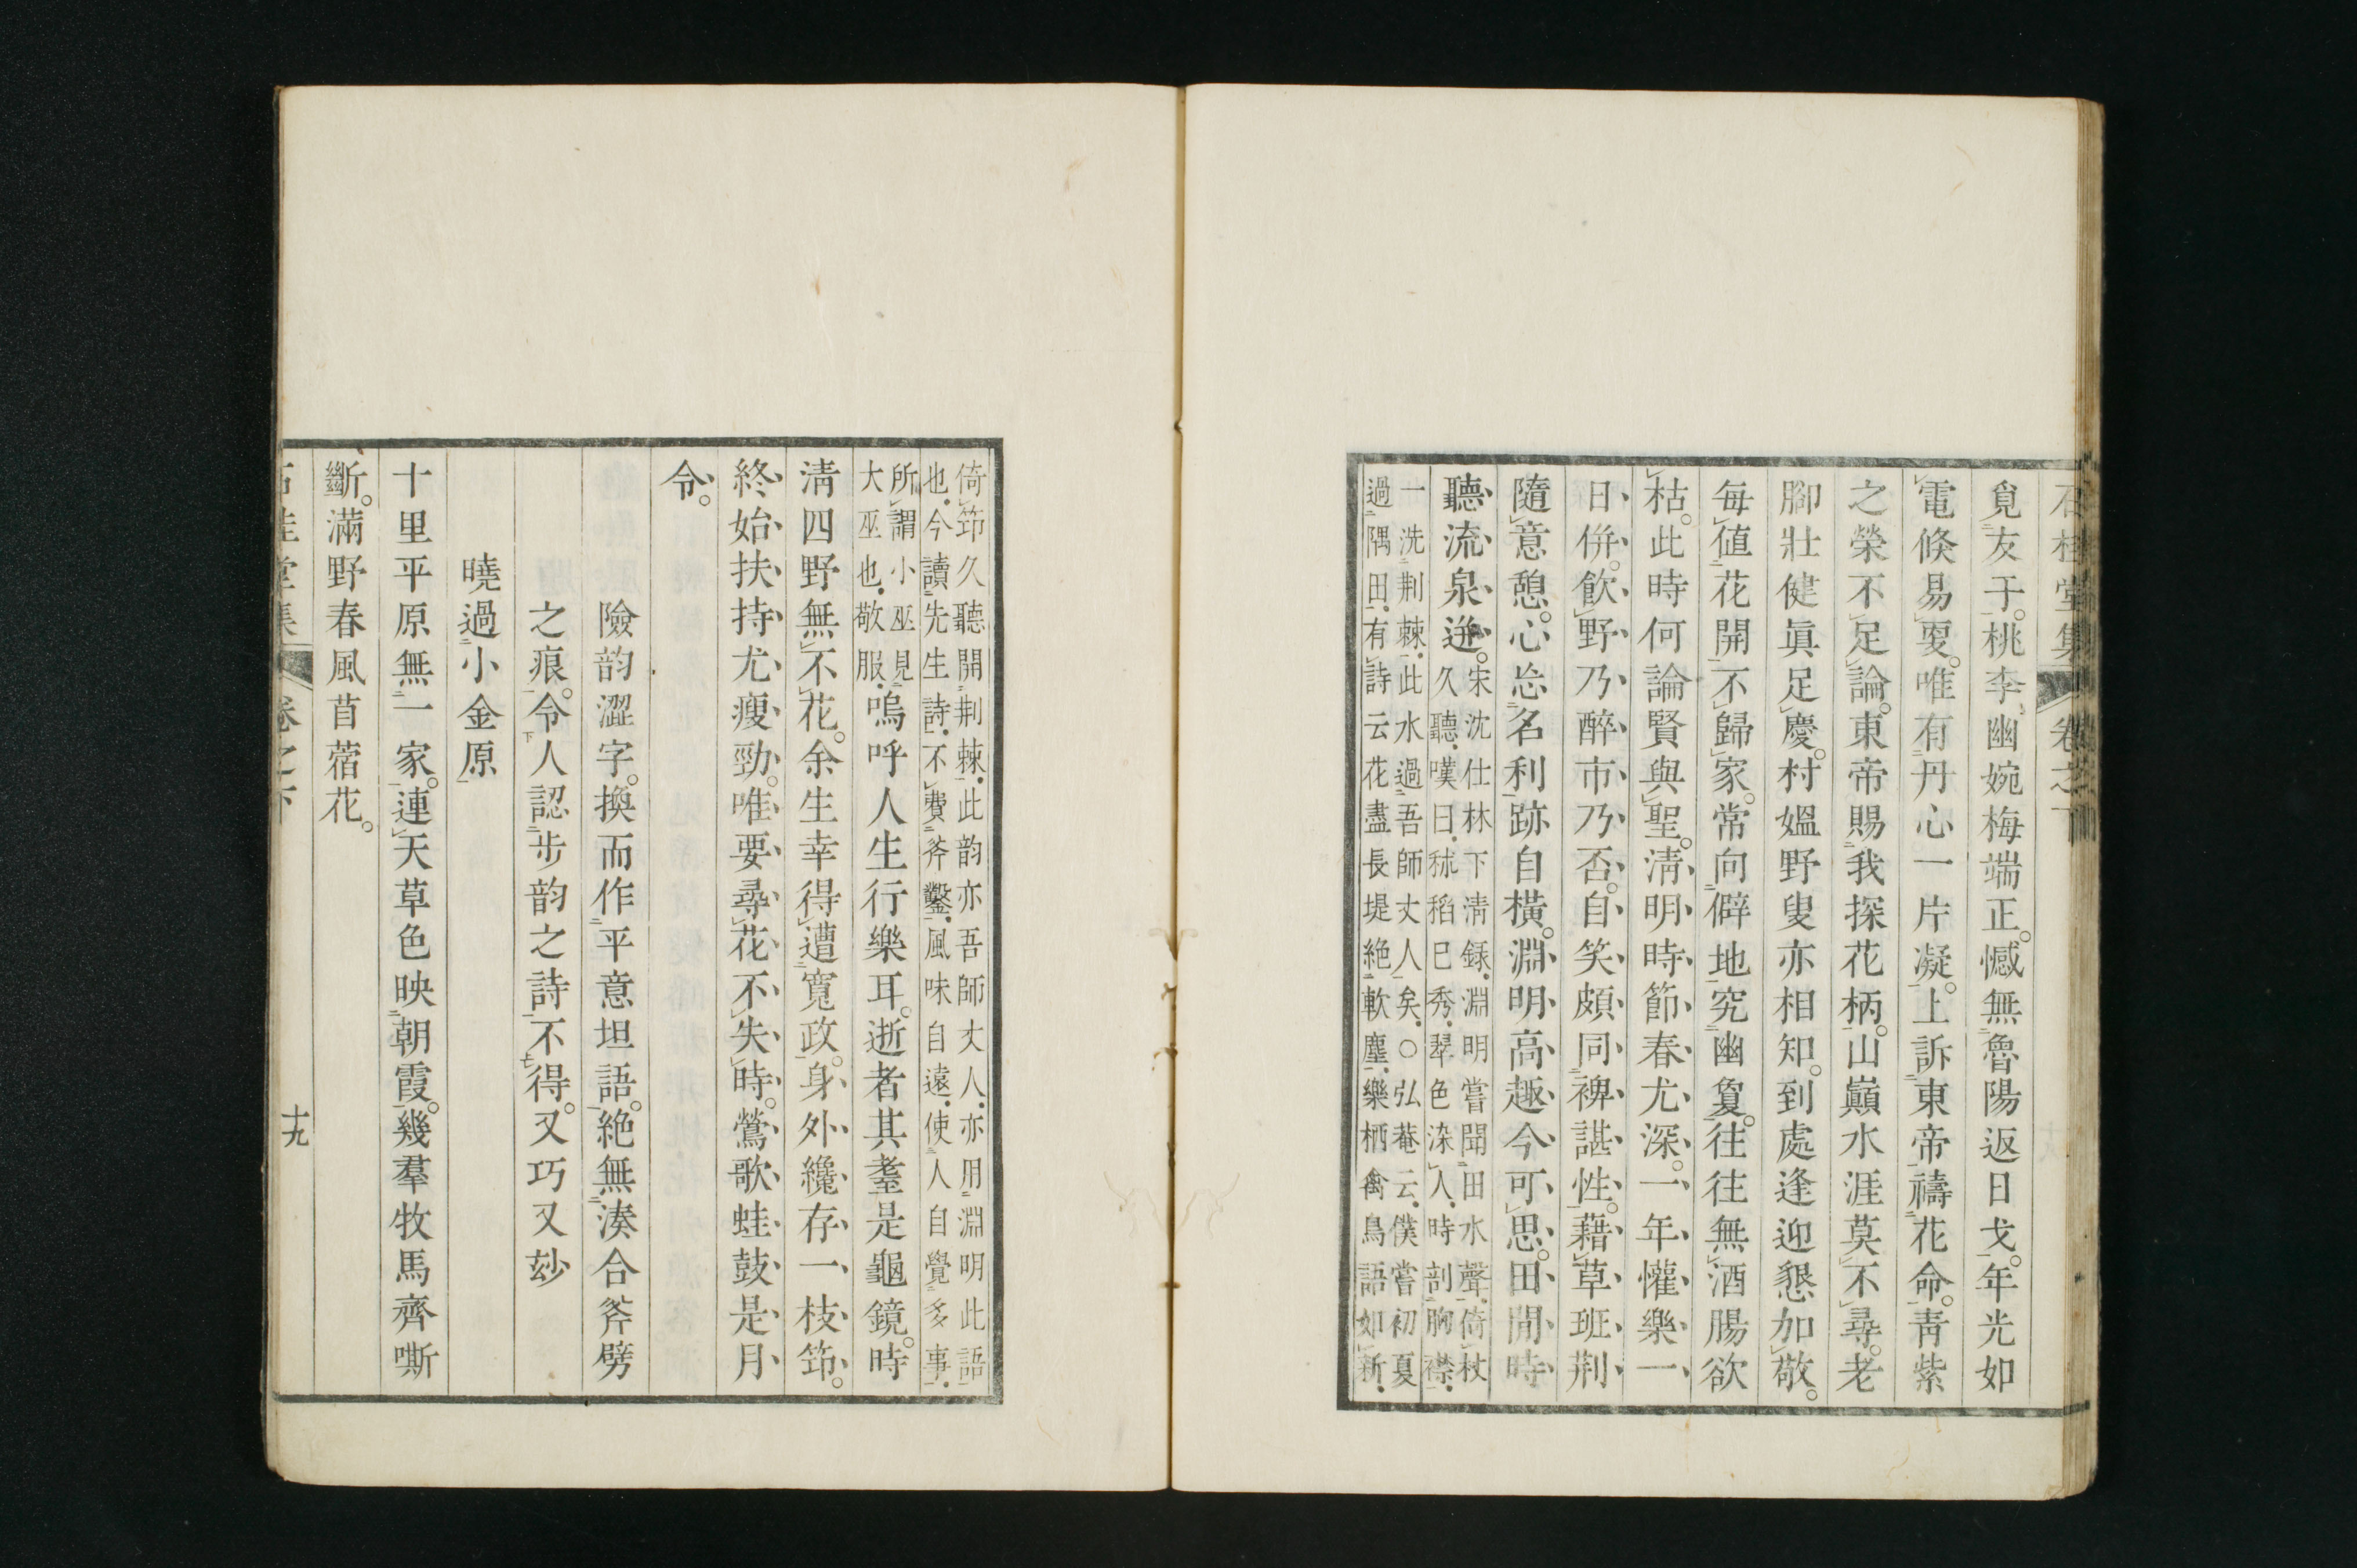 石桂堂集 卷之下
覓友于。桃李幽婉梅端正。憾無魯陽返日戈。年光如
電倏易叓。唯有丹心一片凝。上訴東帝禱花命。青紫
之榮不足論。東帝賜我探花柄。山巓水涯莫不尋。老
脚壯健眞足慶。村媼野叟亦相知。到處逢迎懇加敬。
每値花開不歸家。常向僻地究幽夐。往往無酒腸欲
枯。此時何論賢與聖。淸明時節春尤深。一年懽樂一
日倂。飲野乃醉市乃否。自笑頗同裨諶性。藉草班荆
隨意憩。心忘名利跡自橫。淵明高趣今可思。田閒時
聽流泉迸。宋沈仕林下淸錄。淵明嘗聞田水聲。倚杖
久聽。嘆曰。秫稻巳秀。翠色染人。時剖胸襟。
一洗荆棘。此水過吾師丈人矣。○弘菴云。僕嘗初夏
過隅田。有詩云花盡長堤絶軟塵。樂栖禽鳥語如新。
倚笻久聽開荆棘。此韵亦吾師丈人。亦用淵明此語
也。今讀先生詩。不費斧鑿。風味自遠。使人自覺多事。
所謂小巫見
大巫也。敬服。嗚呼人生行樂耳。逝者其耋是龜鏡。時
淸四野無不花。余生幸得遭寬政。身外纔存一枝笻。
終始扶持尤瘦勁。唯要尋花不失時。鶯歌蛙鼓是月
令。
險韵澀字。換而作平意坦語。絶無湊合斧劈
之痕。令人認步韵之詩不得。又巧又玅
曉過小金原
十里平原無一家。連天草色映朝霞。幾羣牧馬齊嘶
斷。滿野春風苜蓿花。
石桂堂集 卷之下 十九